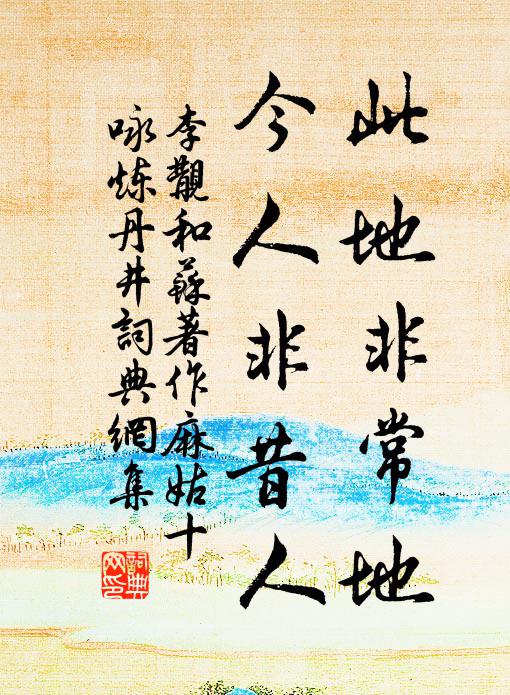 此地非常地
今人非昔人
李覯和蘇著作麻姑十
咏炼丹井詞典網集
詞典